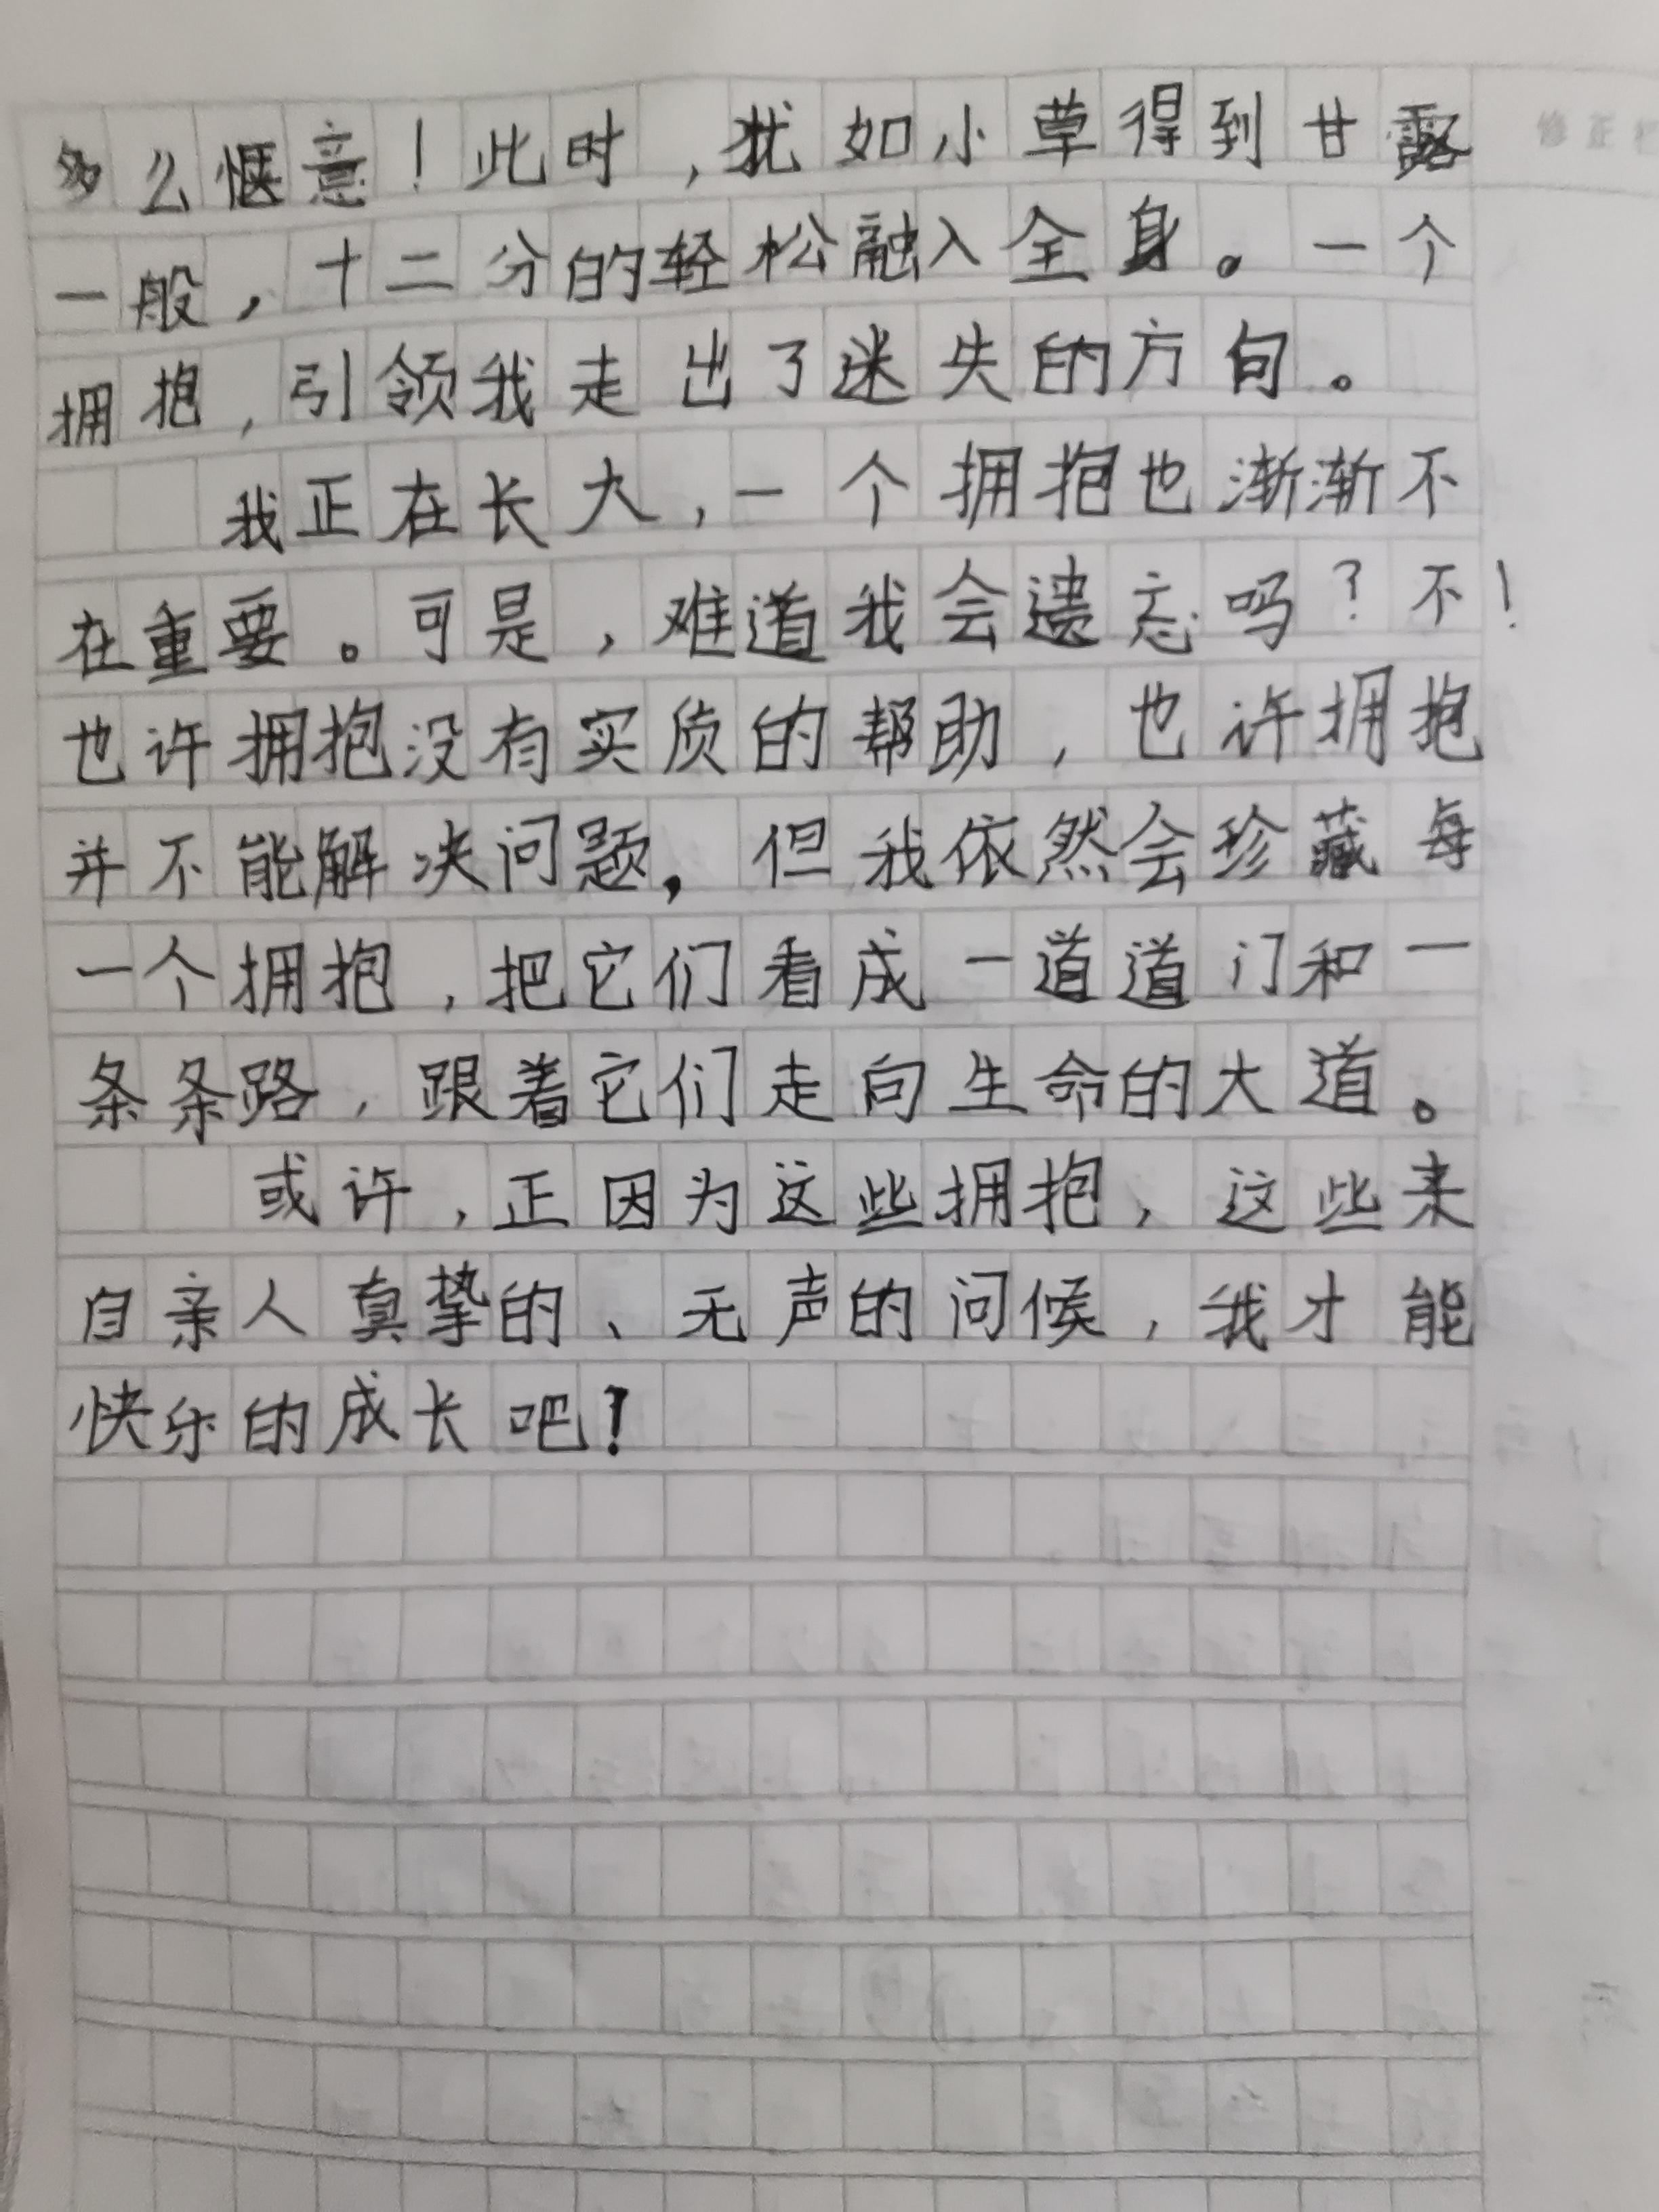 多么惬意！此时，犹如小草得到甘露
一般，十二分的轻松融入全身。一个
拥抱，引领我走出了迷失的方向。
我正在长大，一个拥抱也渐渐不
在重要。可是，难道我会遗忘吗？不！
也许拥抱没有实质的帮助，也许拥抱
并不能解决问题，但我依然会珍藏每
一个拥抱，把它们看成一道道门和一
条条路，跟着它们走向生命的大道。
或许，正因为这些拥抱，这些来
自亲人真挚的、无声的问候，我才能
快乐的成长吧！
修正栏